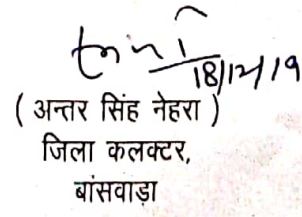 18/12/19
( अन्तर सिंह नेहरा )
जिला कलक्टर,
बांसवाड़ा